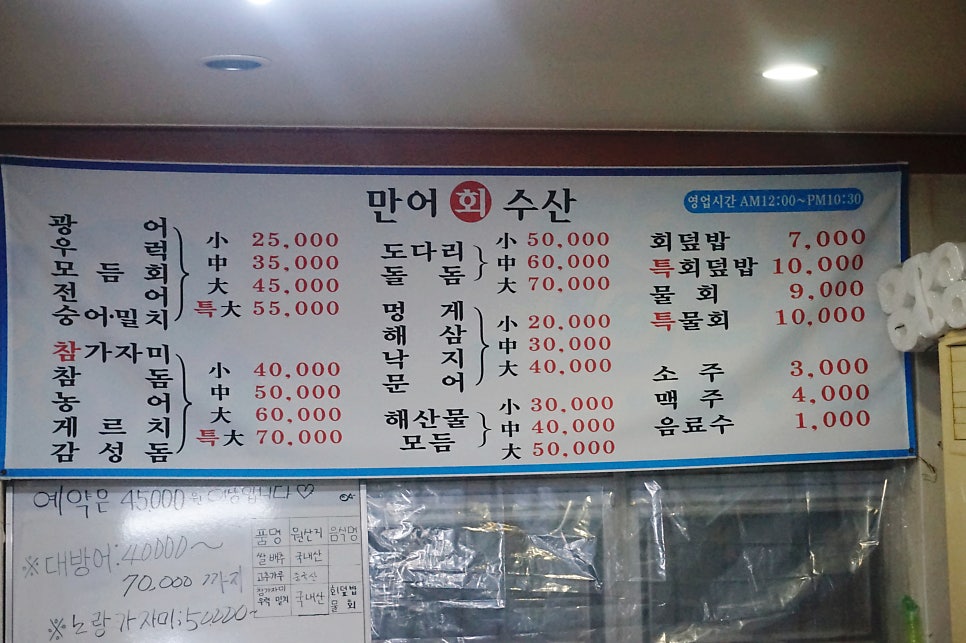 만어 회 수산
영업시간 AM12:00~PM10:30
광어
우럭
모듬회
전어
숭어·밀치
小 25,000
中 35,000
大 45,000
특大 55,000
참가자미
참돔
농어
게르치
감성돔
小 40,000
中 50,000
大 60,000
특大 70,000
도다리
돌돔
小 50,000
中 60,000
大 70,000
멍게
해삼
낙지
문어
小 20,000
中 30,000
大 40,000
해산물
모듬
小 30,000
中 40,000
大 50,000
회덮밥 7,000
특회덮밥 10,000
물회 9,000
특물회 10,000
소주 3,000
맥주 4,000
음료수 1,000
예약은 45000원 이상입니다♡
※대방어:40000~
70.000 까지
※노랑가자미:50000~
품명 원산지 음식명
쌀 배추 국내산
고추가루 중국산
참가자미 우럭 밀치 국내산 회덮밥 물회